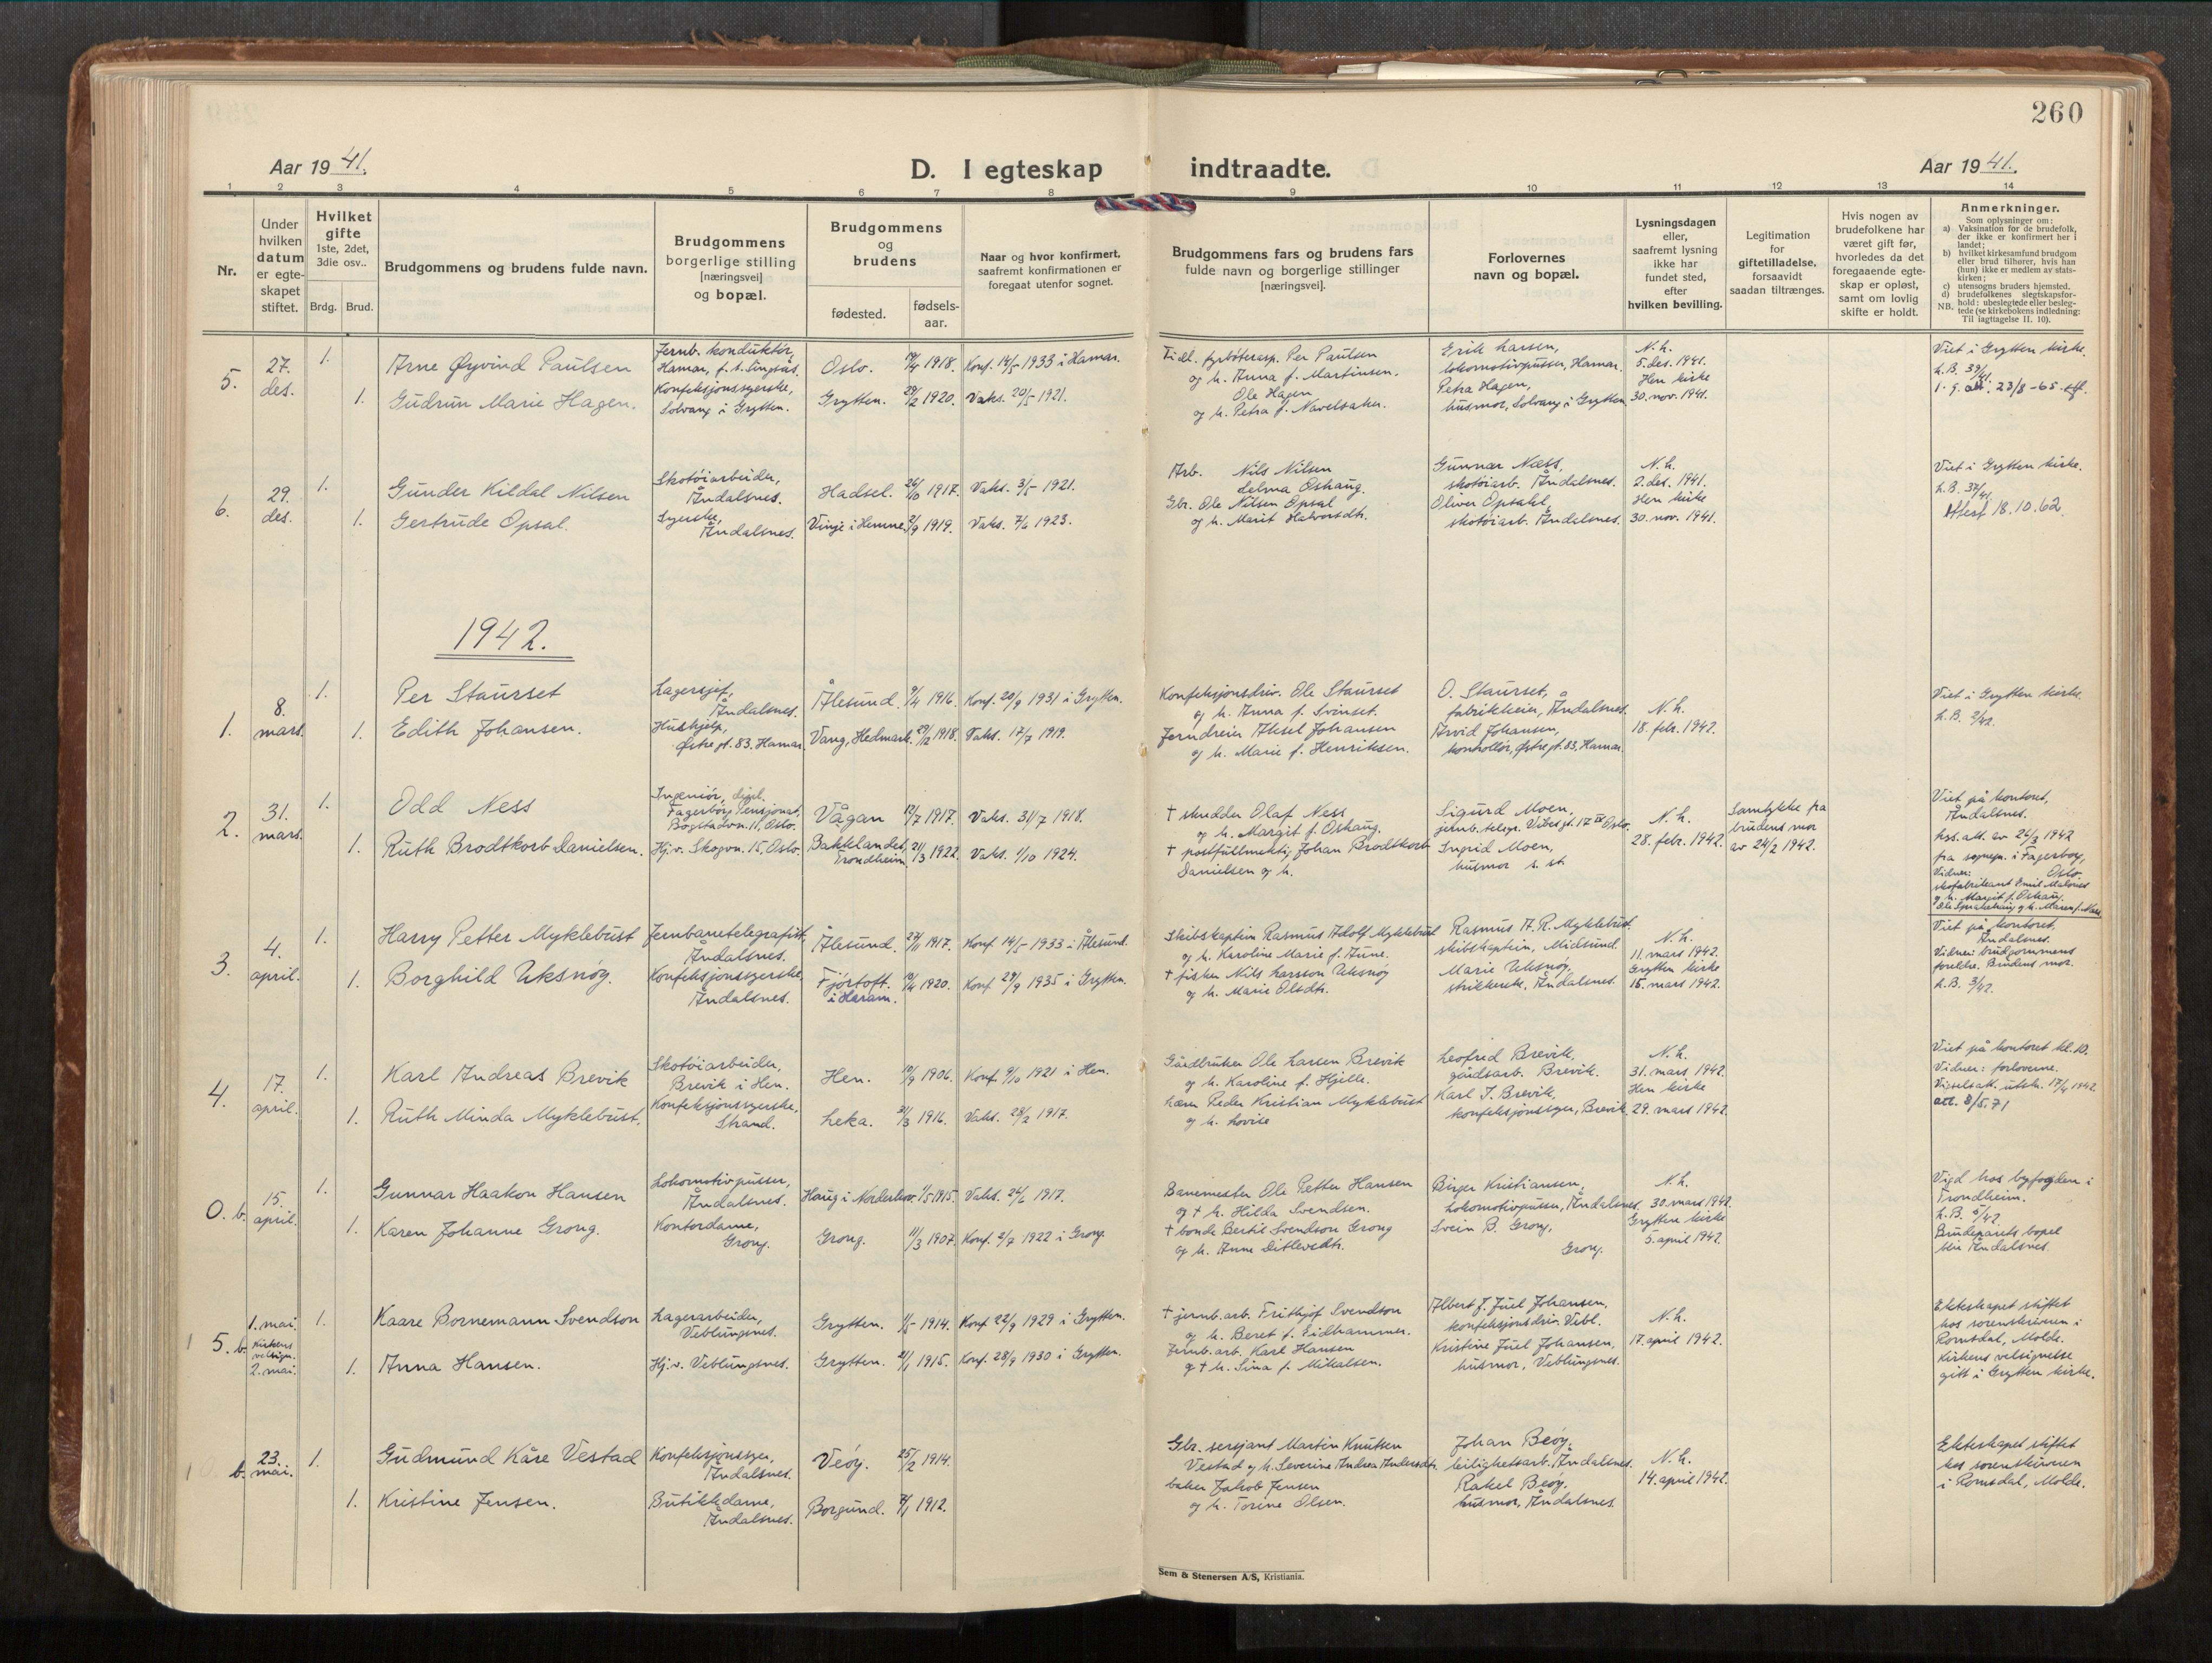 260
Aar 1941.
D. I egteskap indtraadte.
Aar 1941.
1 2 3 4 5 6 7 8 9 10 11 12 13 14
Nr.
Under hvilken datum er egteskapet stiftet.
Hvilket gifte
1ste, 2det, 3die osv..
Brdg. Brud.
Brudgommens og brudens fulde navn.
Brudgommens borgerlige stilling [næringsvei] og bopæl.
Brudgommens og brudens
fødested.
fødselsaar.
Naar og hvor konfirmert, saafremt konfirmationen er foregaat utenfor sognet.
Brudgommens fars og brudens fars fulde navn og borgerlige stillinger [næringsvei].
Forlovernes navn og bopæl.
Lysningsdagen eller, saafremt lysning ikke har fundet sted, efter hvilken bevilling.
Legitimation for giftetilladelse, forsaavidt saadan tiltrænges.
Hvis nogen av brudefolkene har været gift før, hvorledes da det foregaaende egteskap er opløst, samt om lovlig skifte er holdt.
Anmerkninger.
Som oplysninger om:
a) Vaksination for de brudefolk, der ikke er konfirmert her i landet;
b) hvilket kirkesamfund brudgom eller brud tilhører, hvis han (hun) ikke er medlem av statskirken;
c) utensogns bruders hjemsted.
d) brudefolkenes slegtskapsforhold: ubeslegtede eller beslegtede (se kirkebokens indledning: Til iagttagelse II. 10).
NB.
5. 27. des.
1. Arne Øyvind Paulsen
Jernb. konduktør, Hamar,
Oslo. 19/4 1918. Konf. 14/5 1933 i Hamar.
Tidl. fyrbøterasp. Per Paulsen
og h. Anna f. Martinsen.
Erik Larsen,
lokomotivpusser, Hamar.
N. h.
5. des. 1941.
1. Gudrun Marie Hagen.
Konfeksjonssyerske,
Solvang i Grytten.
Grytten. 29/2 1920. Vaks. 20/5 1921.
Ole Hagen
og h. Petra f. Navelsaker.
Petra Hagen,
husmor, Solvang i Grytten
Hen kirke
30. nov. 1941.
Viet i Grytten kirke.
L.B. 39/41.
23/8-65
6. 29. des.
1. Gunder Kildal Nilsen
Skotøiarbeider,
Åndalsnes.
Hadsel. 26/10 1917. Vaks. 3/5 1921.
Arb. Nils Nilsen
Selma Oshaug.
Gunnar Næss,
skotøiarb. Åndalsnes.
N. h.
2. des. 1941.
1. Gertrude Opsal.
Syerske,
Åndalsnes.
Vinje i Hemne. 2/9 1919. Vaks. 7/6 1923.
Gbr. Ole Nilsen Opsal
og h. Marit Halvorsdtr.
Oliver Opsahl,
skotøiarb. Åndalsnes.
Hen kirke
30. nov. 1941.
Viet i Grytten kirke.
L.B. 37/41.
Attest 18.10.62.
1942.
1. 8. mars.
1. Per Staurset
Lagersjef,
Åndalsnes.
Ålesund. 9/4 1916. Konf. 20/9 1931 i Grytten.
Konfeksjonsdriv. Ole Staurset
og h. Anna f. Svinset.
O. Staurset,
fabrikkeier, Åndalsnes.
N. h.
18. febr. 1942.
1. Edith Johansen.
Hushjelp,
Østre gt. 83. Hamar.
Vang, Hedmark. 29/12 1918. Vaks. 17/7 1919.
Jerndreier Aksel Johansen
og h. Marie f. Henriksen.
Arvid Johansen,
kontrollør, Østre gt. 83, Hamar.
Viet i Grytten kirke.
L.B. 2/42.
2. 31. mars.
1. Odd Ness
Ingeniør, dipl.
Fagerborg Pensjonat,
Bogstadvn. 11, Oslo.
Vågan 12/7 1917. Vaks. 31/7 1918.
† skredder Olaf Ness
og h. Margit f. Oshaug.
Sigurd Moen,
jernb. telegr. Vibes gt. 17 IV Oslo.
N. h.
28. febr. 1942.
Samtykke fra
brudens mor
av 24/2 1942.
1. Ruth Brodtkorb Danielsen.
Hj.v. Skogvn. 15, Oslo.
Bakkelandet, Trondheim 21/3 1922. Vaks. 1/10 1924.
† postfullmektig Johan Brodtkorb
Danielsen og h.
Ingrid Moen,
husmor s. st.
Viet på kontoret,
Åndalsnes.
av 24/3 1942
fra sognepr. i Fagerborg,
Oslo.
Vidner:
skofabrikant Emil
og h. Margit f. Oshaug.
3. 4. april.
1. Harry Petter Myklebust
Jernbanetelegrafist,
Åndalsnes.
Ålesund. 29/11 1917. Konf. 14/5 1933 i Ålesund.
Skibskaptein Rasmus Adolf Myklebust
og h. Karoline Marie f. Aune.
Rasmus A. R. Myklebust,
skibskaptein, Midsund.
N. h.
11. mars 1942.
1. Borghild Uksnøy.
Konfeksjonssyerske
Åndalsnes.
Fjørtoft. i Haram. 19/4 1920. Konf. 29/9 1935 i Grytten.
† fisker Nils Larsson Uksnøy
og h. Marie Olsdtr.
Marie Uksnøy,
strikkerske, Åndalsnes.
Grytten kirke
15. mars 1942.
Viet på kontoret,
Åndalsnes.
Vidner: brudgommens
foreldre. Brudens mor.
L.B. 3/42.
4. 17. april.
1. Karl Andreas Brevik
Skotøiarbeider,
Brevik i Hen.
Hen. 19/9 1906. Konf. 9/10 1921 i Hen.
Gårdbruker Ole Larsen Brevik
og h. Karoline f. Hjelle.
Leofred Brevik,
gårdsarb. Brevik.
N. h.
31. mars 1942.
1. Ruth Minda Myklebust.
Konfeksjonssyerske,
Strand.
Leka. 31/3 1916. Vaks. 28/2 1917.
Lærer Peder Kristian Myklebust
og h. Lovise
Karl J. Brevik,
konfeksjonssyer, Brevik.
Hen kirke
29. mars 1942.
Viet på kontoret kl. 10.
Vidner: forloverne.
Vielsesatt. utstr. 17/4 1942.
att. 8/5.71
0. b. 15. april.
1. Gunnar Haakon Hansen
Lokomotivpusser,
Åndalsnes.
Haug i Norderhov. 1/5 1915. Vaks. 24/6 1917.
Banemester Ole Petter Hansen
og † h. Hilda Svendsen.
Birger Kristiansen,
Lokomotivpusser, Åndalsnes.
N. h.
30. mars 1942.
1. Karen Johanne Grong.
Kontordame,
Grong.
Grong. 11/3 1907. Konf. 2/7 1922 i Grong.
† bonde Bertil Svendson Grong
og h. Anne Ditlevsdtr.
Svein B. Grong,
Grong.
Grytten kirke
5. april 1942.
Vigd hos byfogden i
Trondheim.
L.B. 5/42
Brudeparets bopel
blir Åndalsnes.
5. b. 1. mai. Kirkens velsign. 2. mai.
1. Kaare Bornemann Svendson
Lagerarbeider,
Veblungsnes.
Grytten. 1/5 1914. Konf. 22/9 1929 i Grytten.
† jernb. arb. Frithjof Svendson
og h. Beret f. Eidhammer.
Albert J. Juel Johansen,
konfeksjonsdriv. Vebl.
N. h.
17. april 1942.
1. Anna Hansen.
Hj.v. Veblungsnes.
Grytten. 21/1 1915. Konf. 28/9 1930 i Grytten.
Jernb. arb. Karl Hansen
og † h. Sina f. Mikalsen.
Kristine Juel Johansen,
husmor, Veblungsnes.
Ekteskapet stiftet
hos sorenskriveren i
Romsdal, Molde.
Kirkens velsignelse
gitt i Grytten kirke.
b. 23. mai.
1. Gudmund Kåre Vestad
Konfeksjonssyer,
Åndalsnes.
Veøy. 25/2 1914.
Gbr. sersjant Martin Knutsen
Vestad og h. Severine Andrea Andersdtr.
Johan Beøy,
leilighetsarb. Åndalsnes.
N. h.
14. april 1942.
1. Kristine Jensen.
Butikkdame,
Åndalsnes.
Borgund. 7/1 1912.
baker Jakob Jensen
og h. Torine Olsen.
Rakel Beøy,
husmor, Åndalsnes.
Ekteskapet stiftet
hos sorenskriveren
i Romsdal, Molde.
Sem & Stenersen A/S, Kristiania.